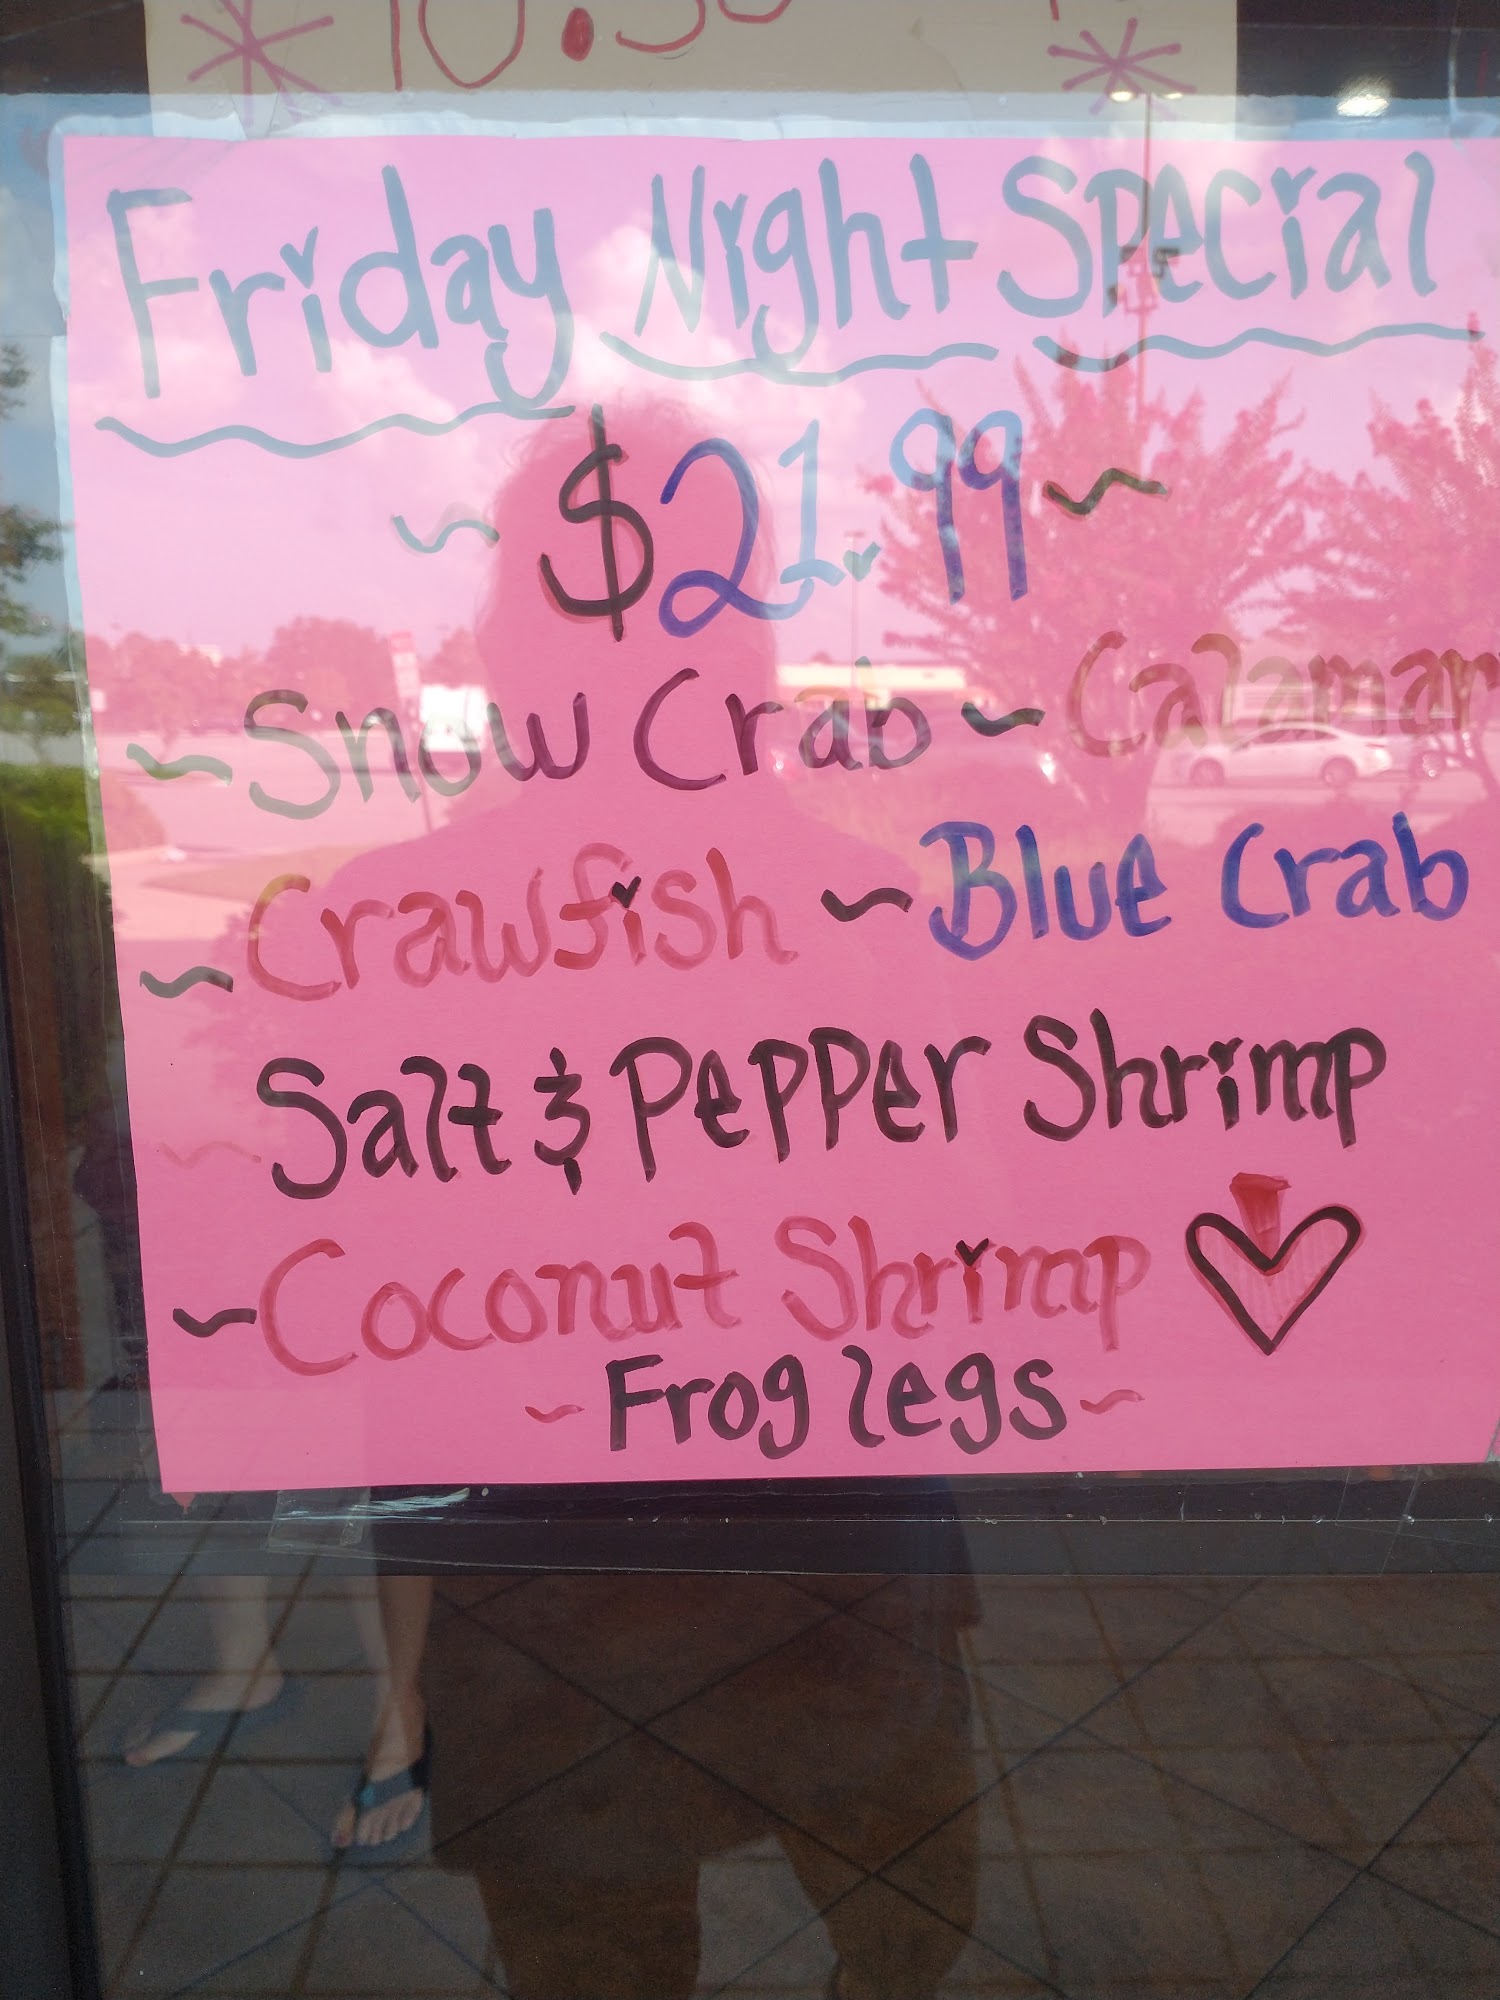 10:30
Friday Night Special
~ $21.99 ~
~ Snow Crab ~ Calamar
~ Crawfish ~ Blue Crab
~ Salt & Pepper Shrimp
~ Coconut Shrimp
~ Frog legs ~